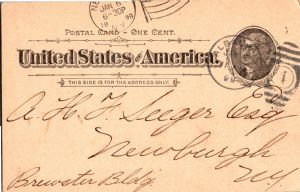 JAN 6
6-30P
99
N.Y.
POSTAL CARD – ONE CENT.
United States of America.
THIS SIDE IS FOR THE ADDRESS ONLY.
A. H. F. Seeger Esq
Newburgh
NY
Brewster Bldg.